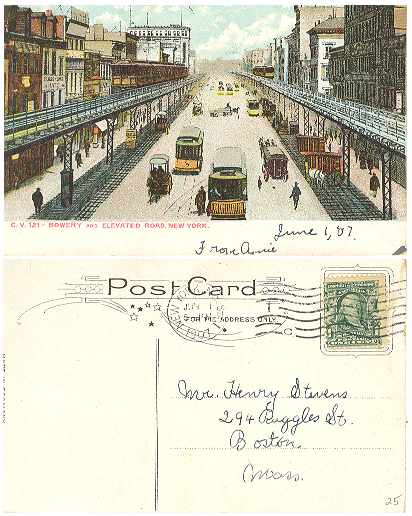 C. V. 121 - BOWERY AND ELEVATED ROAD, NEW YORK.
June 1, '07.
From Annie
Post Card
FOR THE ADDRESS ONLY.
Mr. Henry Stevens
294 Ruggles St.
Boston.
Mass.
25